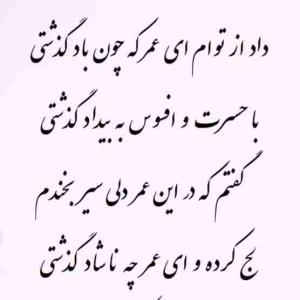 داد از توام ای عمر که چون باد گذشتی
با حسرت و افسوس به بیداد گذشتی
گفتم که در این عمر دلی سیر بخندم
لج کرده و ای عمر چه ناشاد گذشتی